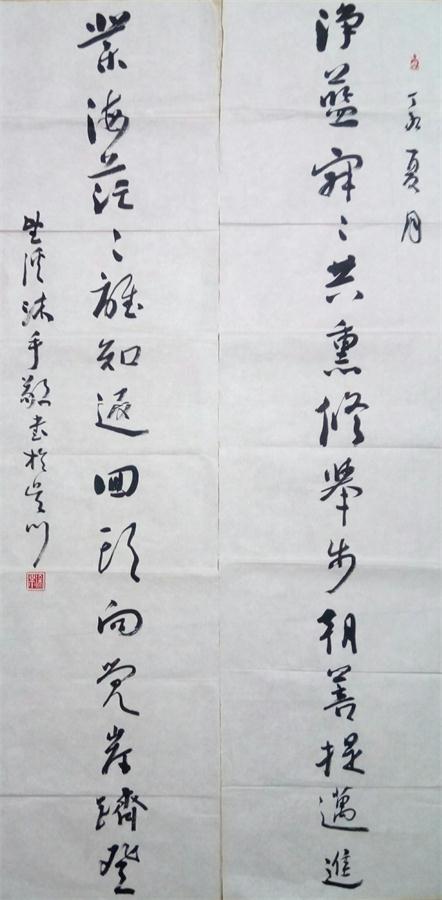 丁酉夏月
淨藍寂々共熏修舉步朝菩提邁進
業海茫々難知遠回頭向覺岸躋登
沐手敬書於吳川